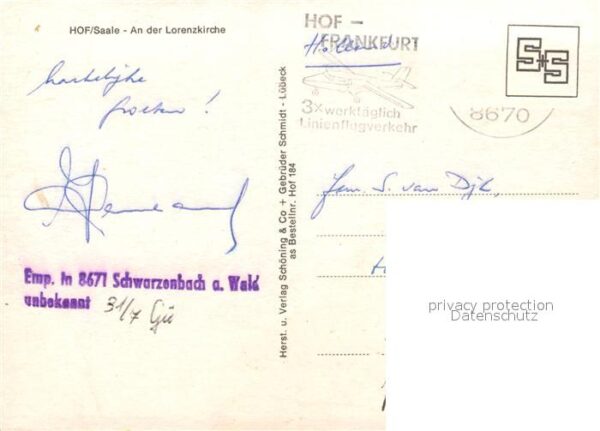 HOF/Saale - An der Lorenzkirche
hartelijke
groeten!
Emp. in 8671 Schwarzenbach a. Wald
unbekannt 31/7
Herst. u. Verlag Schöning & Co + Gebrüder Schmidt - Lübeck
as Bestellnr. Hof 184
HOF -
FRANKFURT
3x werktäglich
Linienflugverkehr
8670
S+S
Fam. S. van Dijk,
privacy protection
Datenschutz